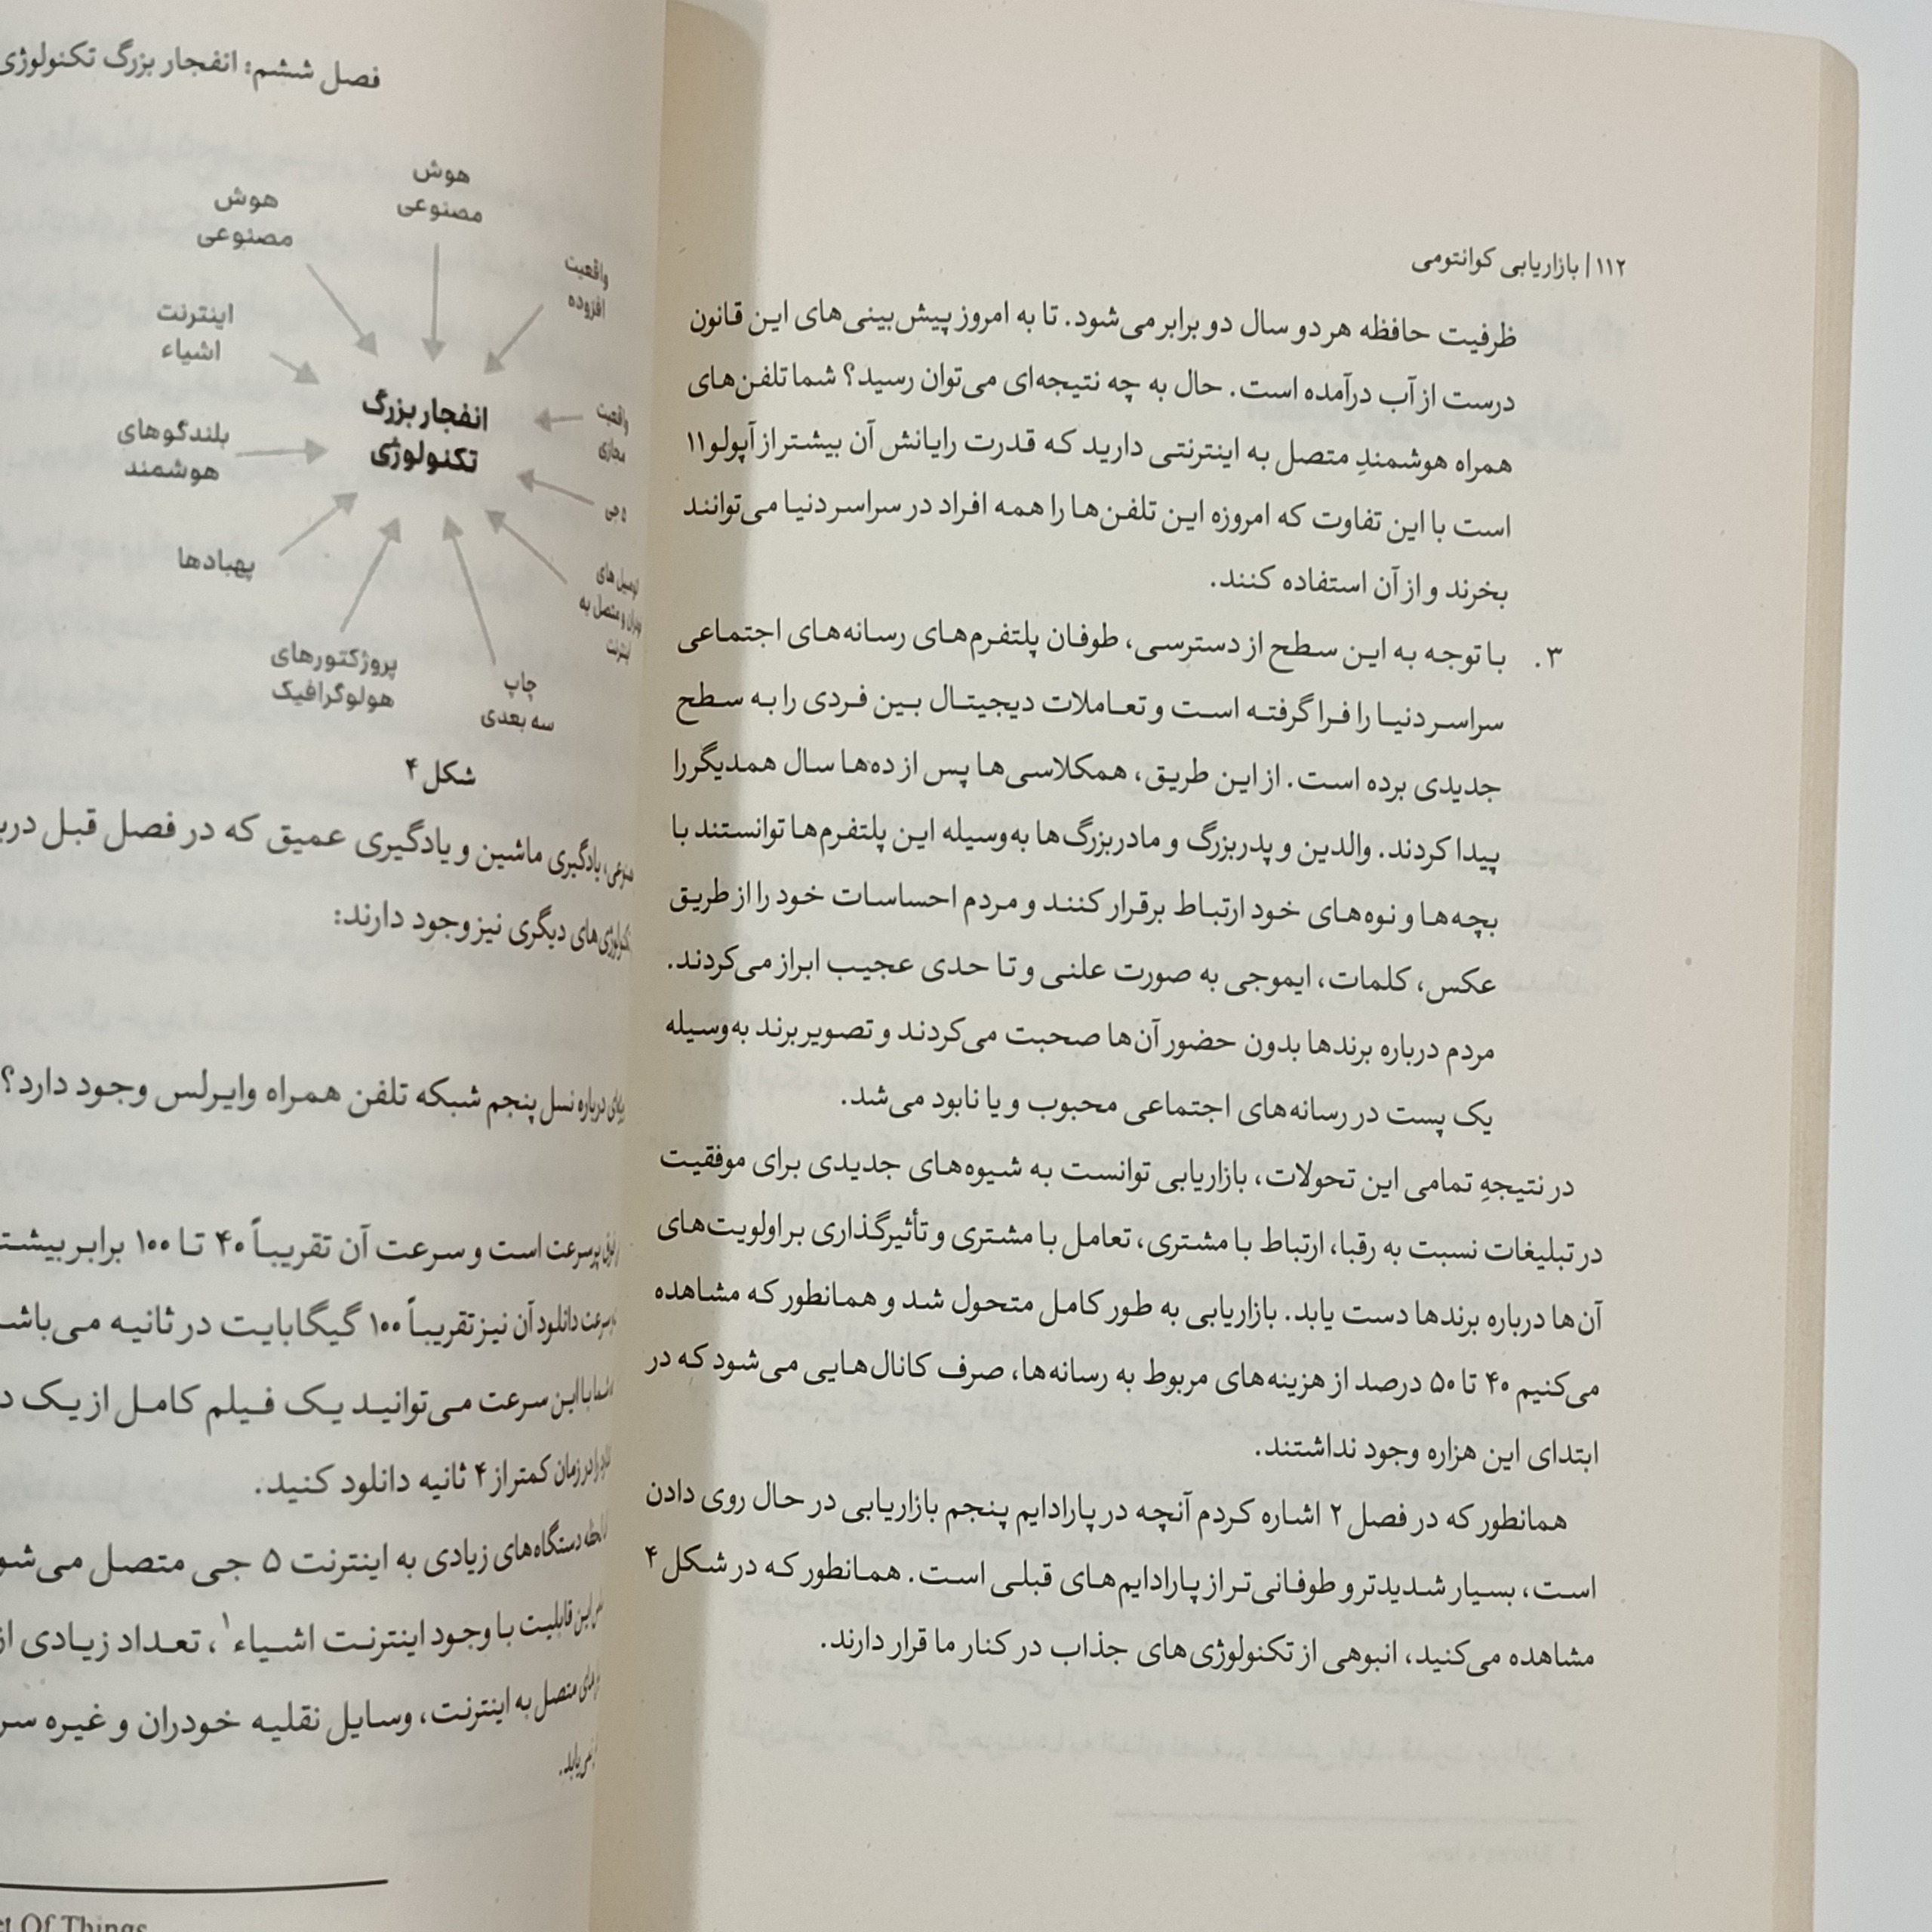 ۱۱۲ | بازاریابی کوانتومی
ظرفیت حافظه هر دو سال دو برابر می‌شود. تا به امروز پیش‌بینی‌های این قانون
درست از آب درآمده است. حال به چه نتیجه‌ای می‌توان رسید؟ شما تلفن‌های
همراه هوشمندِ متصل به اینترنتی دارید که قدرت رایانش آن بیشتر از آپولو ۱۱
است با این تفاوت که امروزه این تلفن‌ها را همه افراد در سراسر دنیا می‌توانند
بخرند و از آن استفاده کنند.
۳. با توجه به این سطح از دسترسی، طوفان پلتفرم‌های رسانه‌های اجتماعی
سراسر دنیا را فرا گرفته است و تعاملات دیجیتال بین فردی را به سطح
جدیدی برده است. از این طریق، همکلاسی‌ها پس از ده‌ها سال همدیگر را
پیدا کردند. والدین و پدربزرگ و مادربزرگ‌ها به‌وسیله این پلتفرم‌ها توانستند با
بچه‌ها و نوه‌های خود ارتباط برقرار کنند و مردم احساسات خود را از طریق
عکس، کلمات، ایموجی به صورت علنی و تا حدی عجیب ابراز می‌کردند.
مردم درباره برندها بدون حضور آن‌ها صحبت می‌کردند و تصویر برند به‌وسیله
یک پست در رسانه‌های اجتماعی محبوب و یا نابود می‌شد.
در نتیجهِ تمامی این تحولات، بازاریابی توانست به شیوه‌های جدیدی برای موفقیت
در تبلیغات نسبت به رقبا، ارتباط با مشتری، تعامل با مشتری و تأثیرگذاری بر اولویت‌های
آن‌ها درباره برندها دست یابد. بازاریابی به طور کامل متحول شد و همانطور که مشاهده
می‌کنیم ۴۰ تا ۵۰ درصد از هزینه‌های مربوط به رسانه‌ها، صرف کانال‌هایی می‌شود که در
ابتدای این هزاره وجود نداشتند.
همانطور که در فصل ۲ اشاره کردم آنچه در پارادایم پنجم بازاریابی در حال روی دادن
است، بسیار شدیدتر و طوفانی‌تر از پارادایم‌های قبلی است. همانطور که در شکل ۴
مشاهده می‌کنید، انبوهی از تکنولوژی‌های جذاب در کنار ما قرار دارند.
فصل ششم: انفجار بزرگ تکنولوژی
هوش
مصنوعی
هوش
مصنوعی
واقعیت
افزوده
اینترنت
اشیاء
انفجار بزرگ
تکنولوژی
واقعیت
مجازی
بلندگوهای
هوشمند
۵ جی
پهبادها
های
و متصل به
اینترنت
پروژکتورهای
هولوگرافیک
چاپ
سه بعدی
شکل ۴
یادگیری ماشین و یادگیری عمیق که در فصل قبل
های دیگری نیز وجود دارند:
درباره نسل پنجم شبکه تلفن همراه وایرلس وجود دارد؟
پرسرعت است و سرعت آن تقریباً ۴۰ تا ۱۰۰ برابر
سرعت دانلود آن نیز تقریباً ۱۰۰ گیگابایت در ثانیه
با این سرعت می‌توانید یک فیلم کامل از یک
در زمان کمتر از ۴ ثانیه دانلود کنید.
دستگاه‌های زیادی به اینترنت ۵ جی متصل
این قابلیت با وجود اینترنت اشیاء۱، تعداد زیادی
متصل به اینترنت، وسایل نقلیه خودران و غیره
Of Things